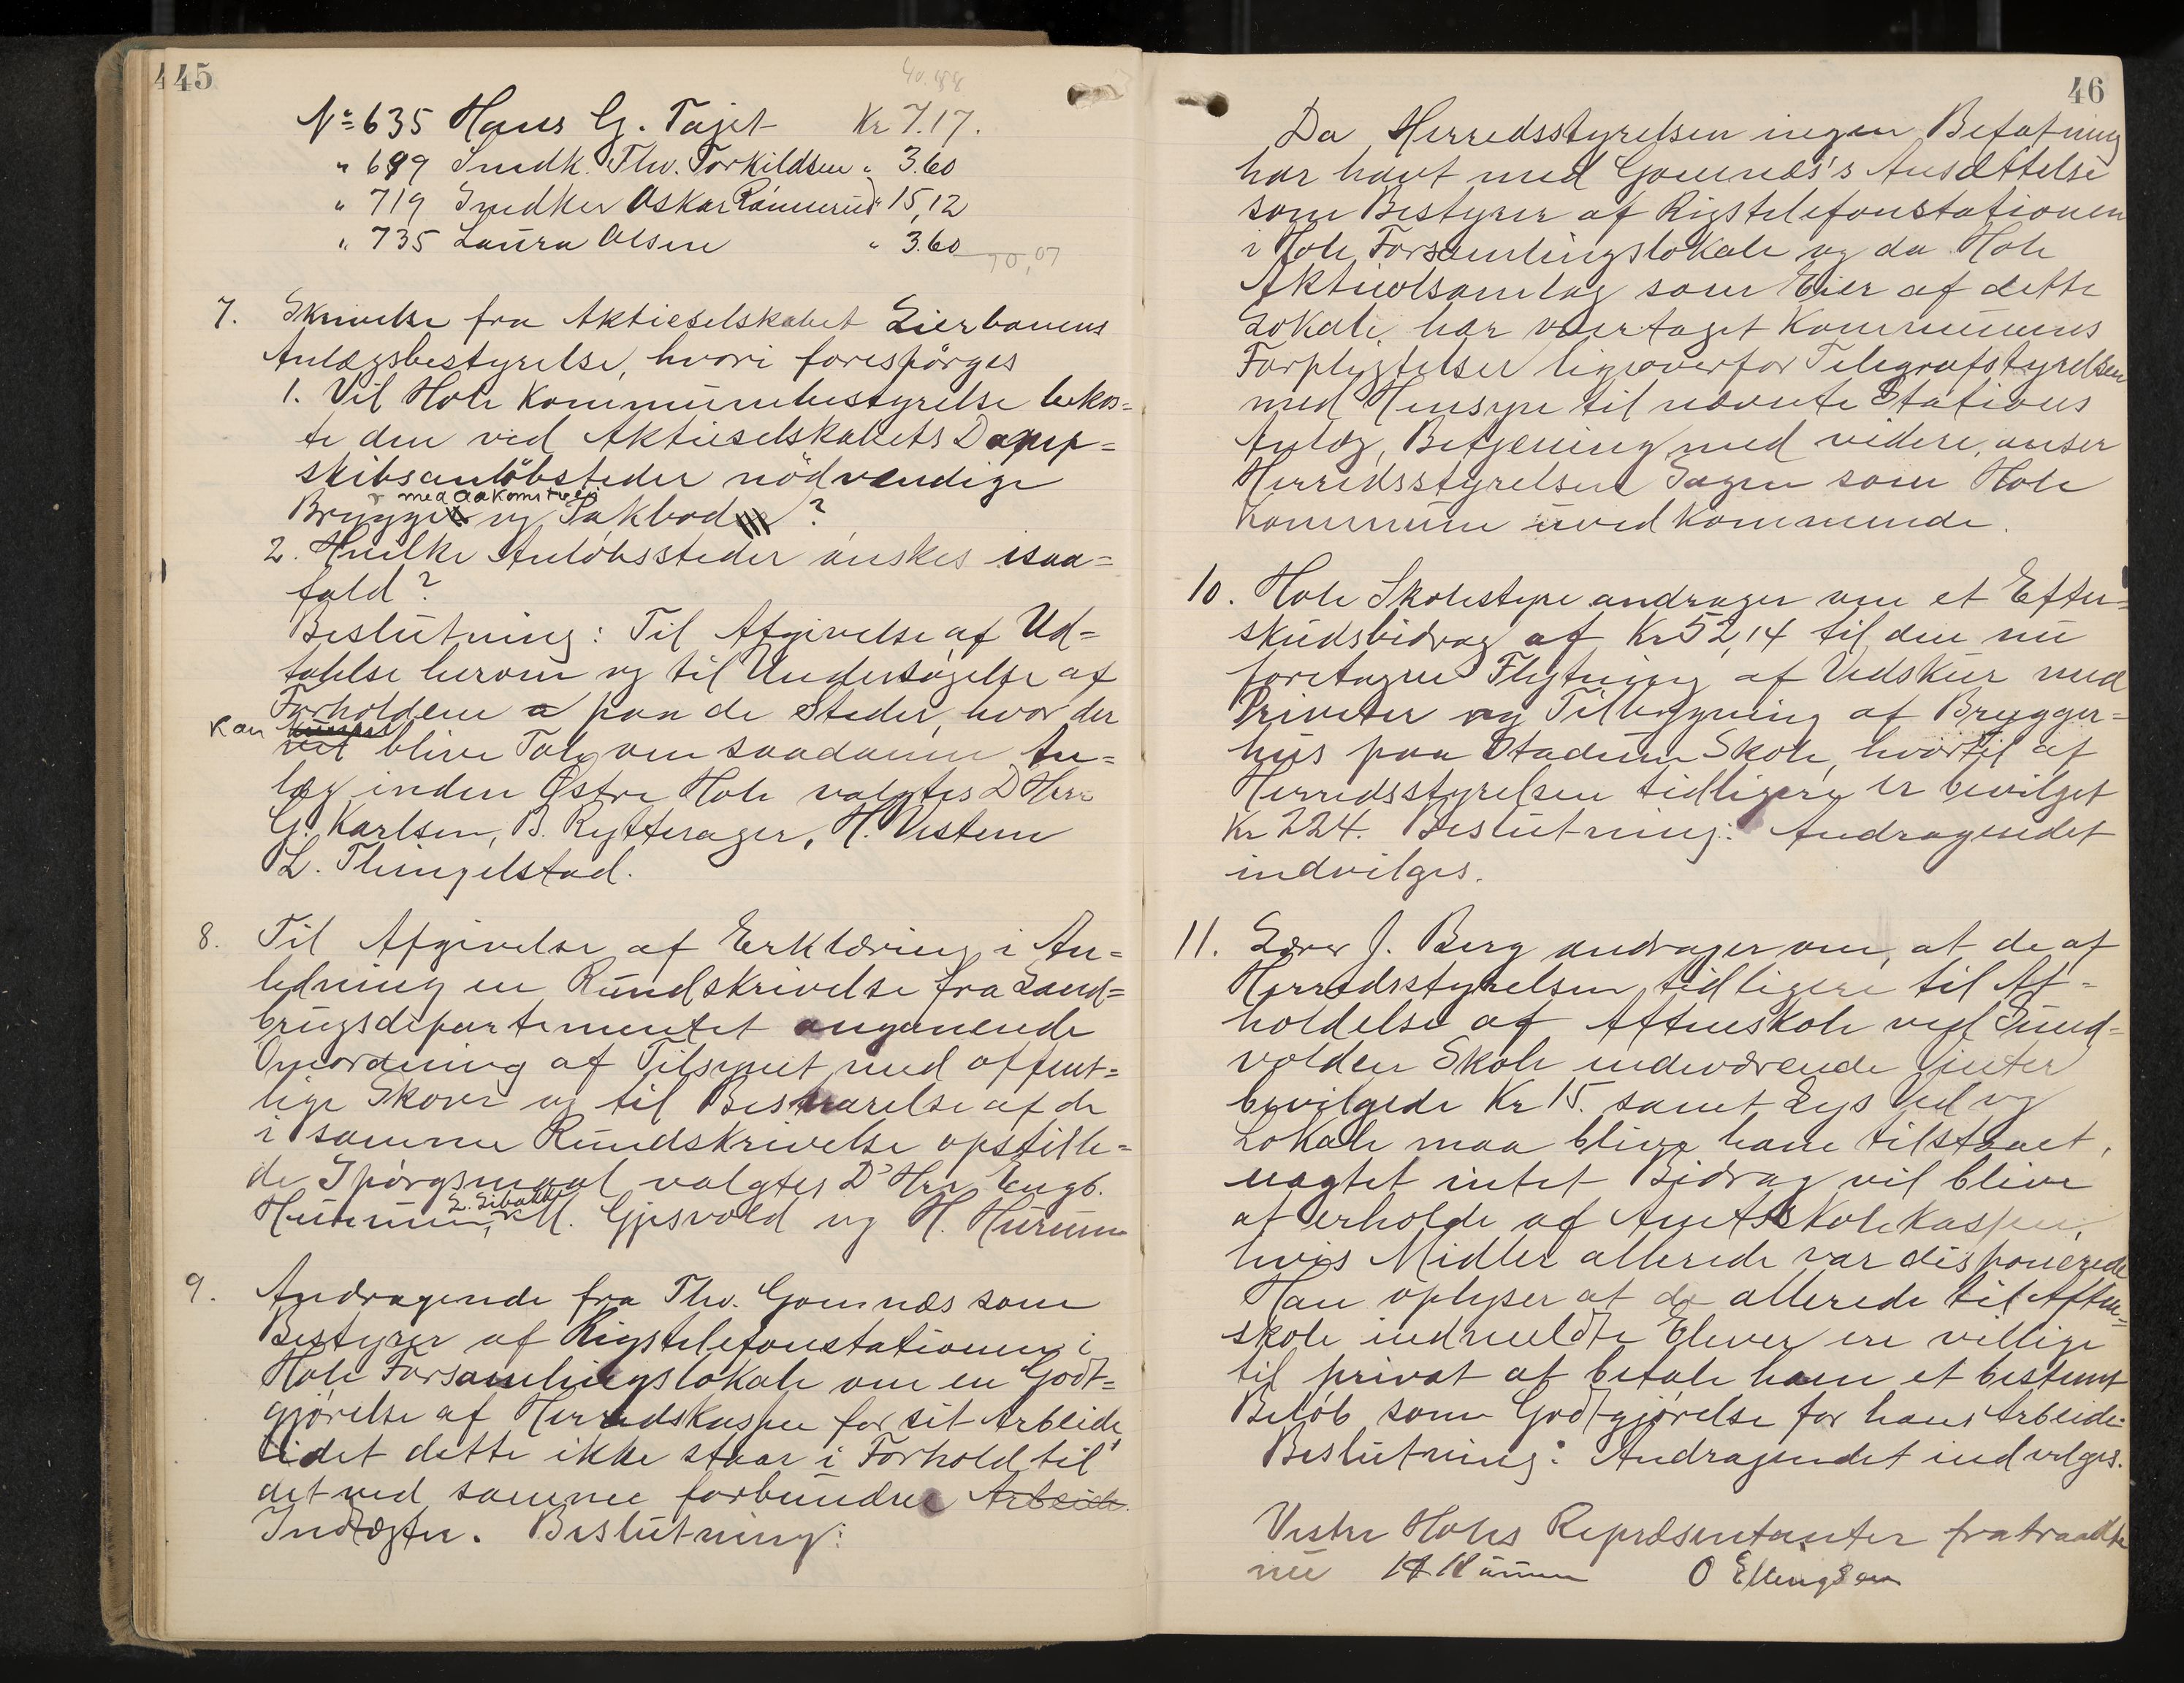 445
40.88
No 635 Hans G. Tajet Kr 7.17.
" 699 Snedk. Thv. Torkildsen " 3.60
" 719 Snedker Oskar Rønnerud " 15,12
" 735 Laura Olsen " 3.60
70,07
7. Skrivelse fra Aktieselskabet Lierbanens
Anlægsbestyrelse, hvori forespörges
1. Vil Hole Kommunebestyrelse bekos=
te den ved Aktieselskabets Damp=
skibsanlöbsteder nödvendige
med Adkomstvei
Brygge og Pakbod ?
2. Hvilke Anlöbssteder önskes isaa=
fald?
Beslutning: Til Afgivelse af Ud=
talelse herom og til Undersögelse af
Forholdene paa de Steder, hvor der
kan blive Tale om saadanne An=
læg inden Østre Hole valgtes D'Herr
G. Karlsen, B. Rytterager, H. Vestern
L. Thingelstad.
8. Til Afgivelse af Erklæring i An=
ledning en Rundskrivelse fra Land=
brugsdepartementet angaaende
Omordning af Tilsynet med offent=
lige Skove og til Besvarelse af de
i samme Rundskrivelse opstille=
de Spörgsmaal valgtes D'Hrr Engb.
L. Libakk
Hurum, M. Gjesvold og H. Hurum
9. Andragende fra Thv. Gomnæs som
Bestyrer af Rigstelefonstationen i
Hole Forsamlingslokale om en Godt=
gjörelse af Herredskassen for sit Arbeide
idet dette ikke staar i Forhold til
det ved samme forbundne Arbeide
Indtægter. Beslutning:
46
Da Herredsstyrelsen ingen Befatning
har havt med Gomnæs's Ansættelse
som Bestyrer af Rigstelefonstationen
i Hole Forsamlingslokale og da Hole
Aktieölsamlag som Eier af dette
Lokale har overtaget Kommunens
Forpligtelser ligeoverfor Telegrafstyrelsen
med Hensyn til nævnte Stations
Anlæg, Betjening med videre, anser
Herredsstyrelsen Sagen som Hole
Kommune uvedkommende.
10. Hole Skolestyre andrager om et Efter=
skudsbidrag af Kr 52,14 til den nu
foretagne Flytning af Vedskur med
Priveter og Tilbygning af Brygger=
hus paa Stadum Skole, hvortil af
Herredsstyrelsen tidligere er bevilget
Kr 224. Beslutning: Andragendet
indvilges.
11. Lærer J. Berg andrager om, at de af
Herredsstyrelsen tidligere til Af=
holdelse af Aftenskole ved Sund=
volden Skole indeværende Vinter
bevilgede Kr 15. samt Lys Ved og
Lokale maa blive ham tilstaaet,
uagtet intet Bidrag vil blive
at erholde af Amtsskolekassen,
hvis Midler allerede var disponerede
Han oplyser at de allerede til Aften=
skole indmeldte Elever ere villige
til privat at betale ham et bestemt
Belöb som Godtgjörelse for hans Arbeide.
Beslutning: Andragendet indvilges.
Vestre Holes Repræsentanter fratraadte
nu H Hurum O Ellingsen